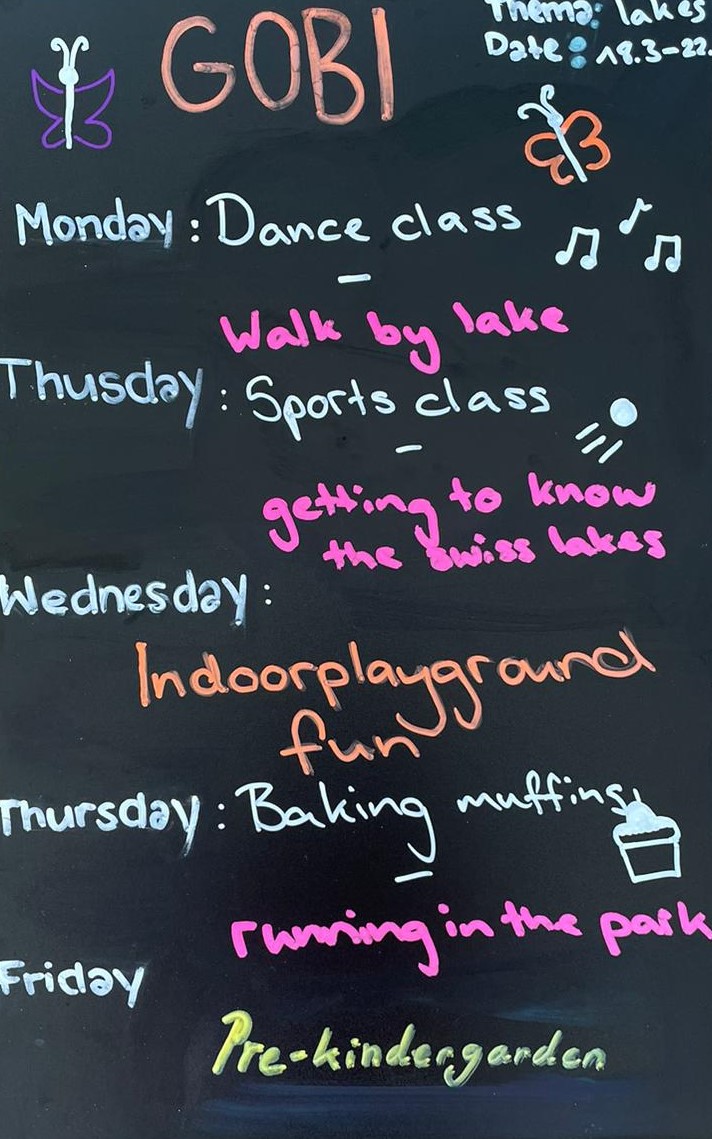 GOBI
Thema: lakes
Date: 18.3-22.
Monday: Dance class
-
Walk by lake
Thusday: Sports class
-
getting to know
the swiss lakes
Wednesday:
Indoorplayground
fun
Thursday: Baking muffins
-
running in the park
Friday
Pre-kindergarden